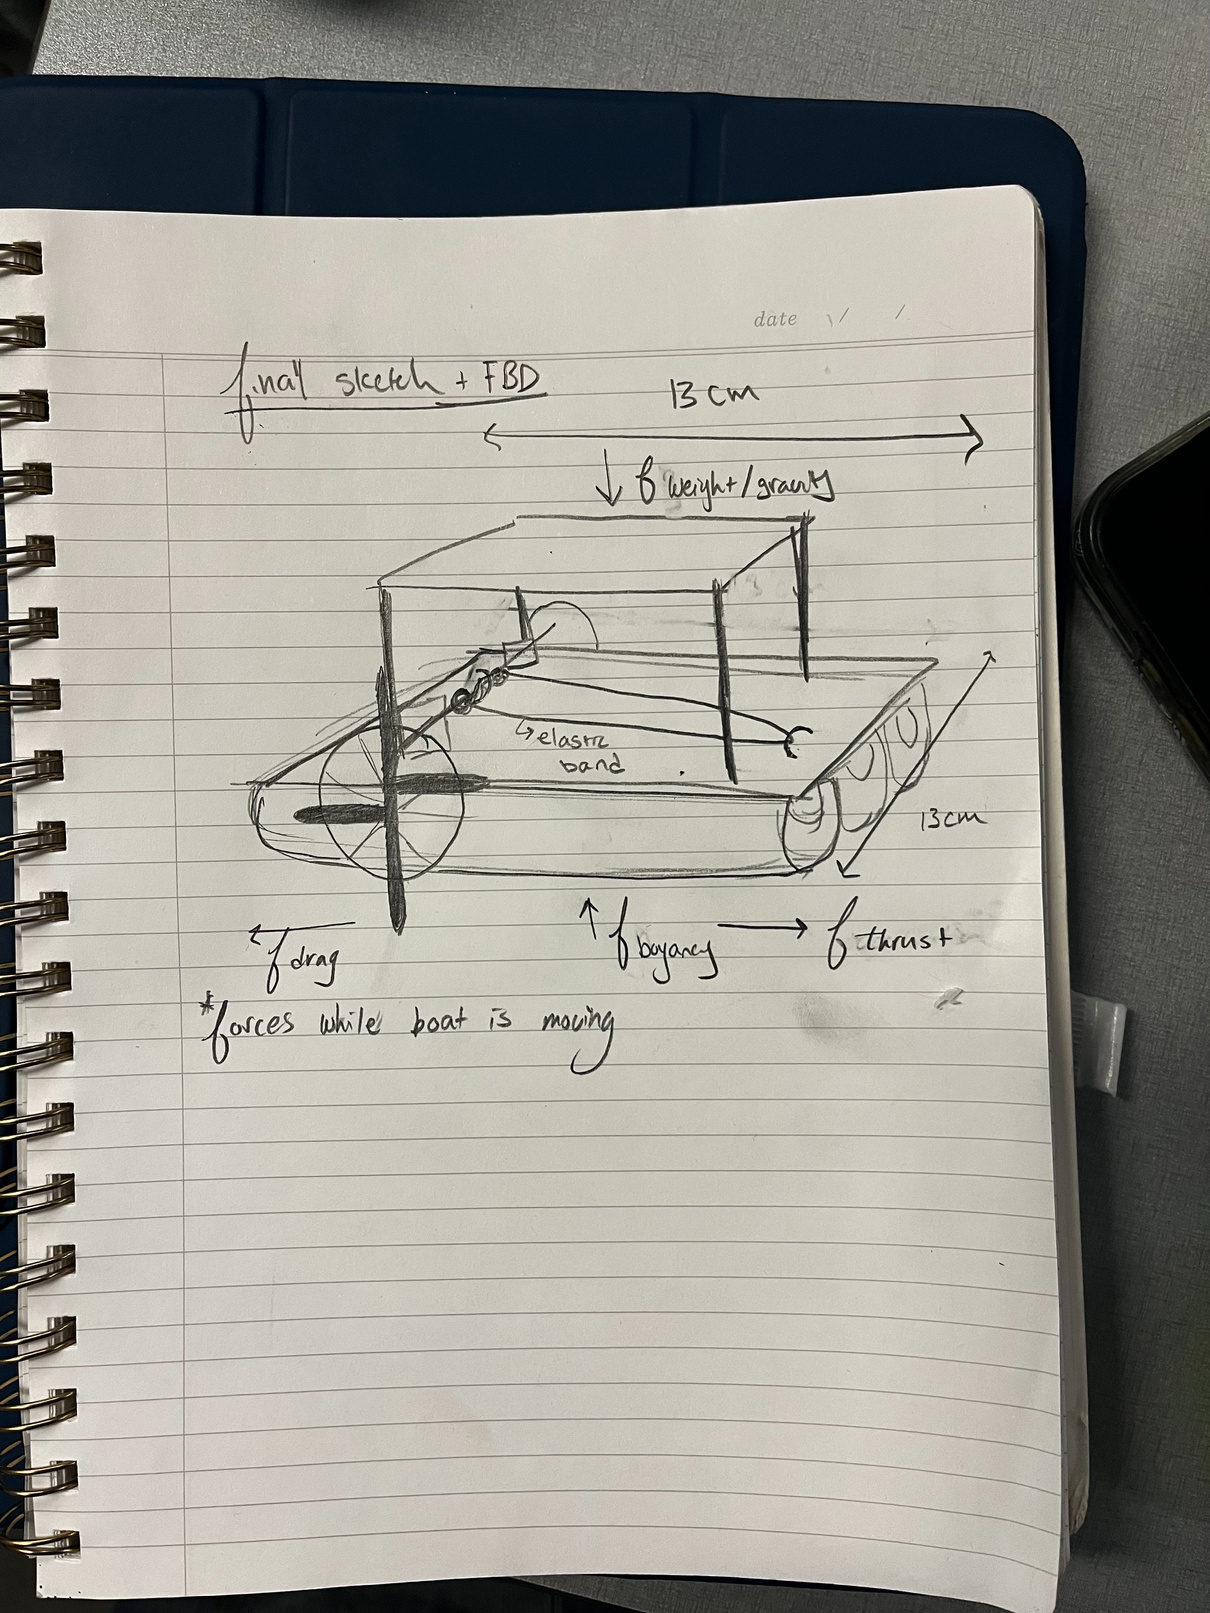 date / /
final sketch + FBD
13 cm
↓ f weight/gravity
↳ elastic
band
13cm
← f drag
↑ f boyancy
→ f thrust
*forces while boat is moving